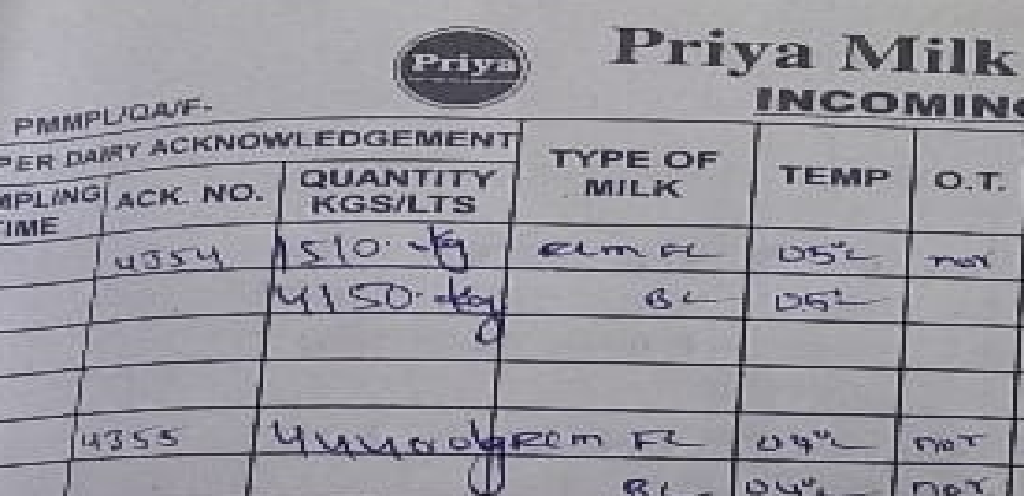 Priya
Priya Milk
INCOMING
PMMPL/QA/F-
PER DAIRY ACKNOWLEDGEMENT
MPLING TIME
ACK. NO.
QUANTITY KGS/LTS
TYPE OF MILK
TEMP
O.T.
4354 1510 kg RCM FC 05°C
4150 kg BC 05°C
4355 kg RCM FC 04°C not
BC 04°C not